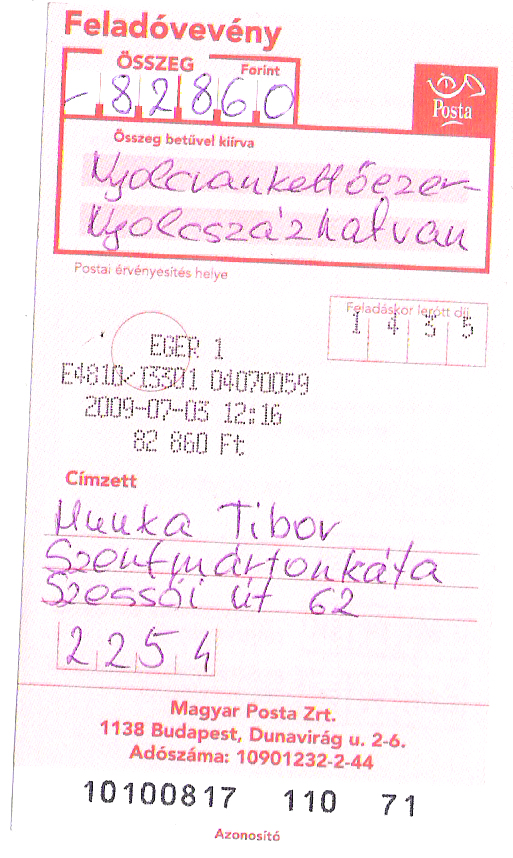 Feladóvevény
ÖSSZEG Forint
- 8 2 8 6 0
Posta
Összeg betűvel kiírva
Nyolcvankettőezer-
Nyolcszázhatvan
Postai érvényesítés helye
Feladáskor lerótt díj
1 4 3 5
EGER 1
E4810/I3301 04070059
2009-07-03 12:16
82 860 Ft
Címzett
Munka Tibor
Szentmártonkáta
Szessői út 62
2 2 5 4
Magyar Posta Zrt.
1138 Budapest, Dunavirág u. 2-6.
Adószáma: 10901232-2-44
10100817 110 71
Azonosító